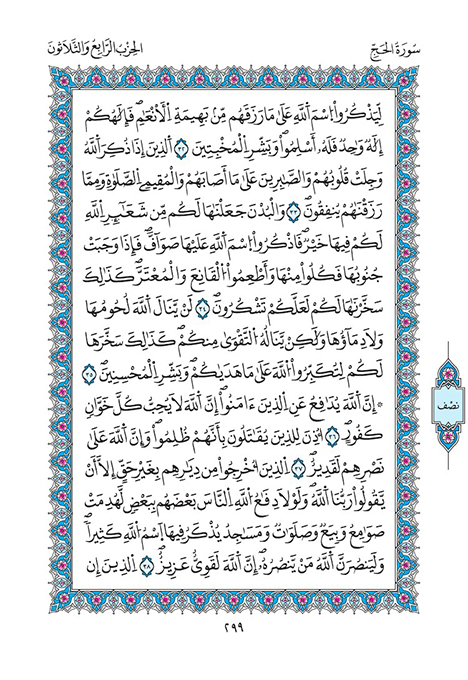 سُورَةُ الحَجِّ
الحِزْبُ الرَّابِعُ وَالثَّلَاثُونَ
لِّيَذْكُرُواْ اُسْمَ اَللَّهِ عَلَىٰ مَا رَزَقَهُم مِّنۢ بَهِيمَةِ اِلْأَنْعَٰمِ فَإِلَٰهُكُمْ
إِلَٰهٌ وَٰحِدٌ فَلَهُۥ أَسْلِمُواْ وَبَشِّرِ اِلْمُخْبِتِينَ ٣٢ اَلَّذِينَ إِذَا ذُكِرَ اَللَّهُ
وَجِلَتْ قُلُوبُهُمْ وَالصَّٰبِرِينَ عَلَىٰ مَا أَصَابَهُمْ وَالْمُقِيمِے اِلصَّلَوٰةِ وَمِمَّا
رَزَقْنَٰهُمْ يُنفِقُونَ ٣٣ وَالْبُدْنَ جَعَلْنَٰهَا لَكُم مِّن شَعَٰٓئِرِ اِللَّهِ
لَكُمْ فِيهَا خَيْرٌ فَاذْكُرُواْ اُسْمَ اَللَّهِ عَلَيْهَا صَوَآفَّ فَإِذَا وَجَبَتْ
جُنُوبُهَا فَكُلُواْ مِنْهَا وَأَطْعِمُواْ اُلْقَانِعَ وَالْمُعْتَرَّ كَذَٰلِكَ
سَخَّرْنَٰهَا لَكُمْ لَعَلَّكُمْ تَشْكُرُونَ ٣٤ لَنْ يَّنَالَ اَللَّهَ لُحُومُهَا
وَلَا دِمَآؤُهَا وَلَٰكِنْ يَّنَالُهُ اُلتَّقْوَىٰ مِنكُمْ كَذَٰلِكَ سَخَّرَهَا
لَكُمْ لِتُكَبِّرُواْ اُللَّهَ عَلَىٰ مَا هَدَىٰكُمْ وَبَشِّرِ اِلْمُحْسِنِينَ ٣٥
۞ إِنَّ اَللَّهَ يُدَٰفِعُ عَنِ اِلَّذِينَ ءَامَنُواْ إِنَّ اَللَّهَ لَا يُحِبُّ كُلَّ خَوَّانٍ
كَفُورٍ ٣٦ اُذِنَ لِلَّذِينَ يُقَٰتَلُونَ بِأَنَّهُمْ ظُلِمُواْ وَإِنَّ اَللَّهَ عَلَىٰ
نَصْرِهِمْ لَقَدِيرٌ ٣٧ اِلَّذِينَ أُخْرِجُواْ مِن دِيَٰرِهِم بِغَيْرِ حَقٍّ اِلَّا أَنْ
يَّقُولُواْ رَبُّنَا اَللَّهُ وَلَوْلَا دِفَٰعُ اُللَّهِ اِلنَّاسَ بَعْضَهُم بِبَعْضٍ لَّهُدِمَتْ
صَوَٰمِعُ وَبِيَعٌ وَصَلَوَٰتٌ وَمَسَٰجِدُ يُذْكَرُ فِيهَا اَسْمُ اُللَّهِ كَثِيراً
وَلَيَنصُرَنَّ اَللَّهُ مَنْ يَّنصُرُهُۥ إِنَّ اَللَّهَ لَقَوِيٌّ عَزِيزٌ ٣٨ اِلَّذِينَ إِن
نصف
٢٩٩